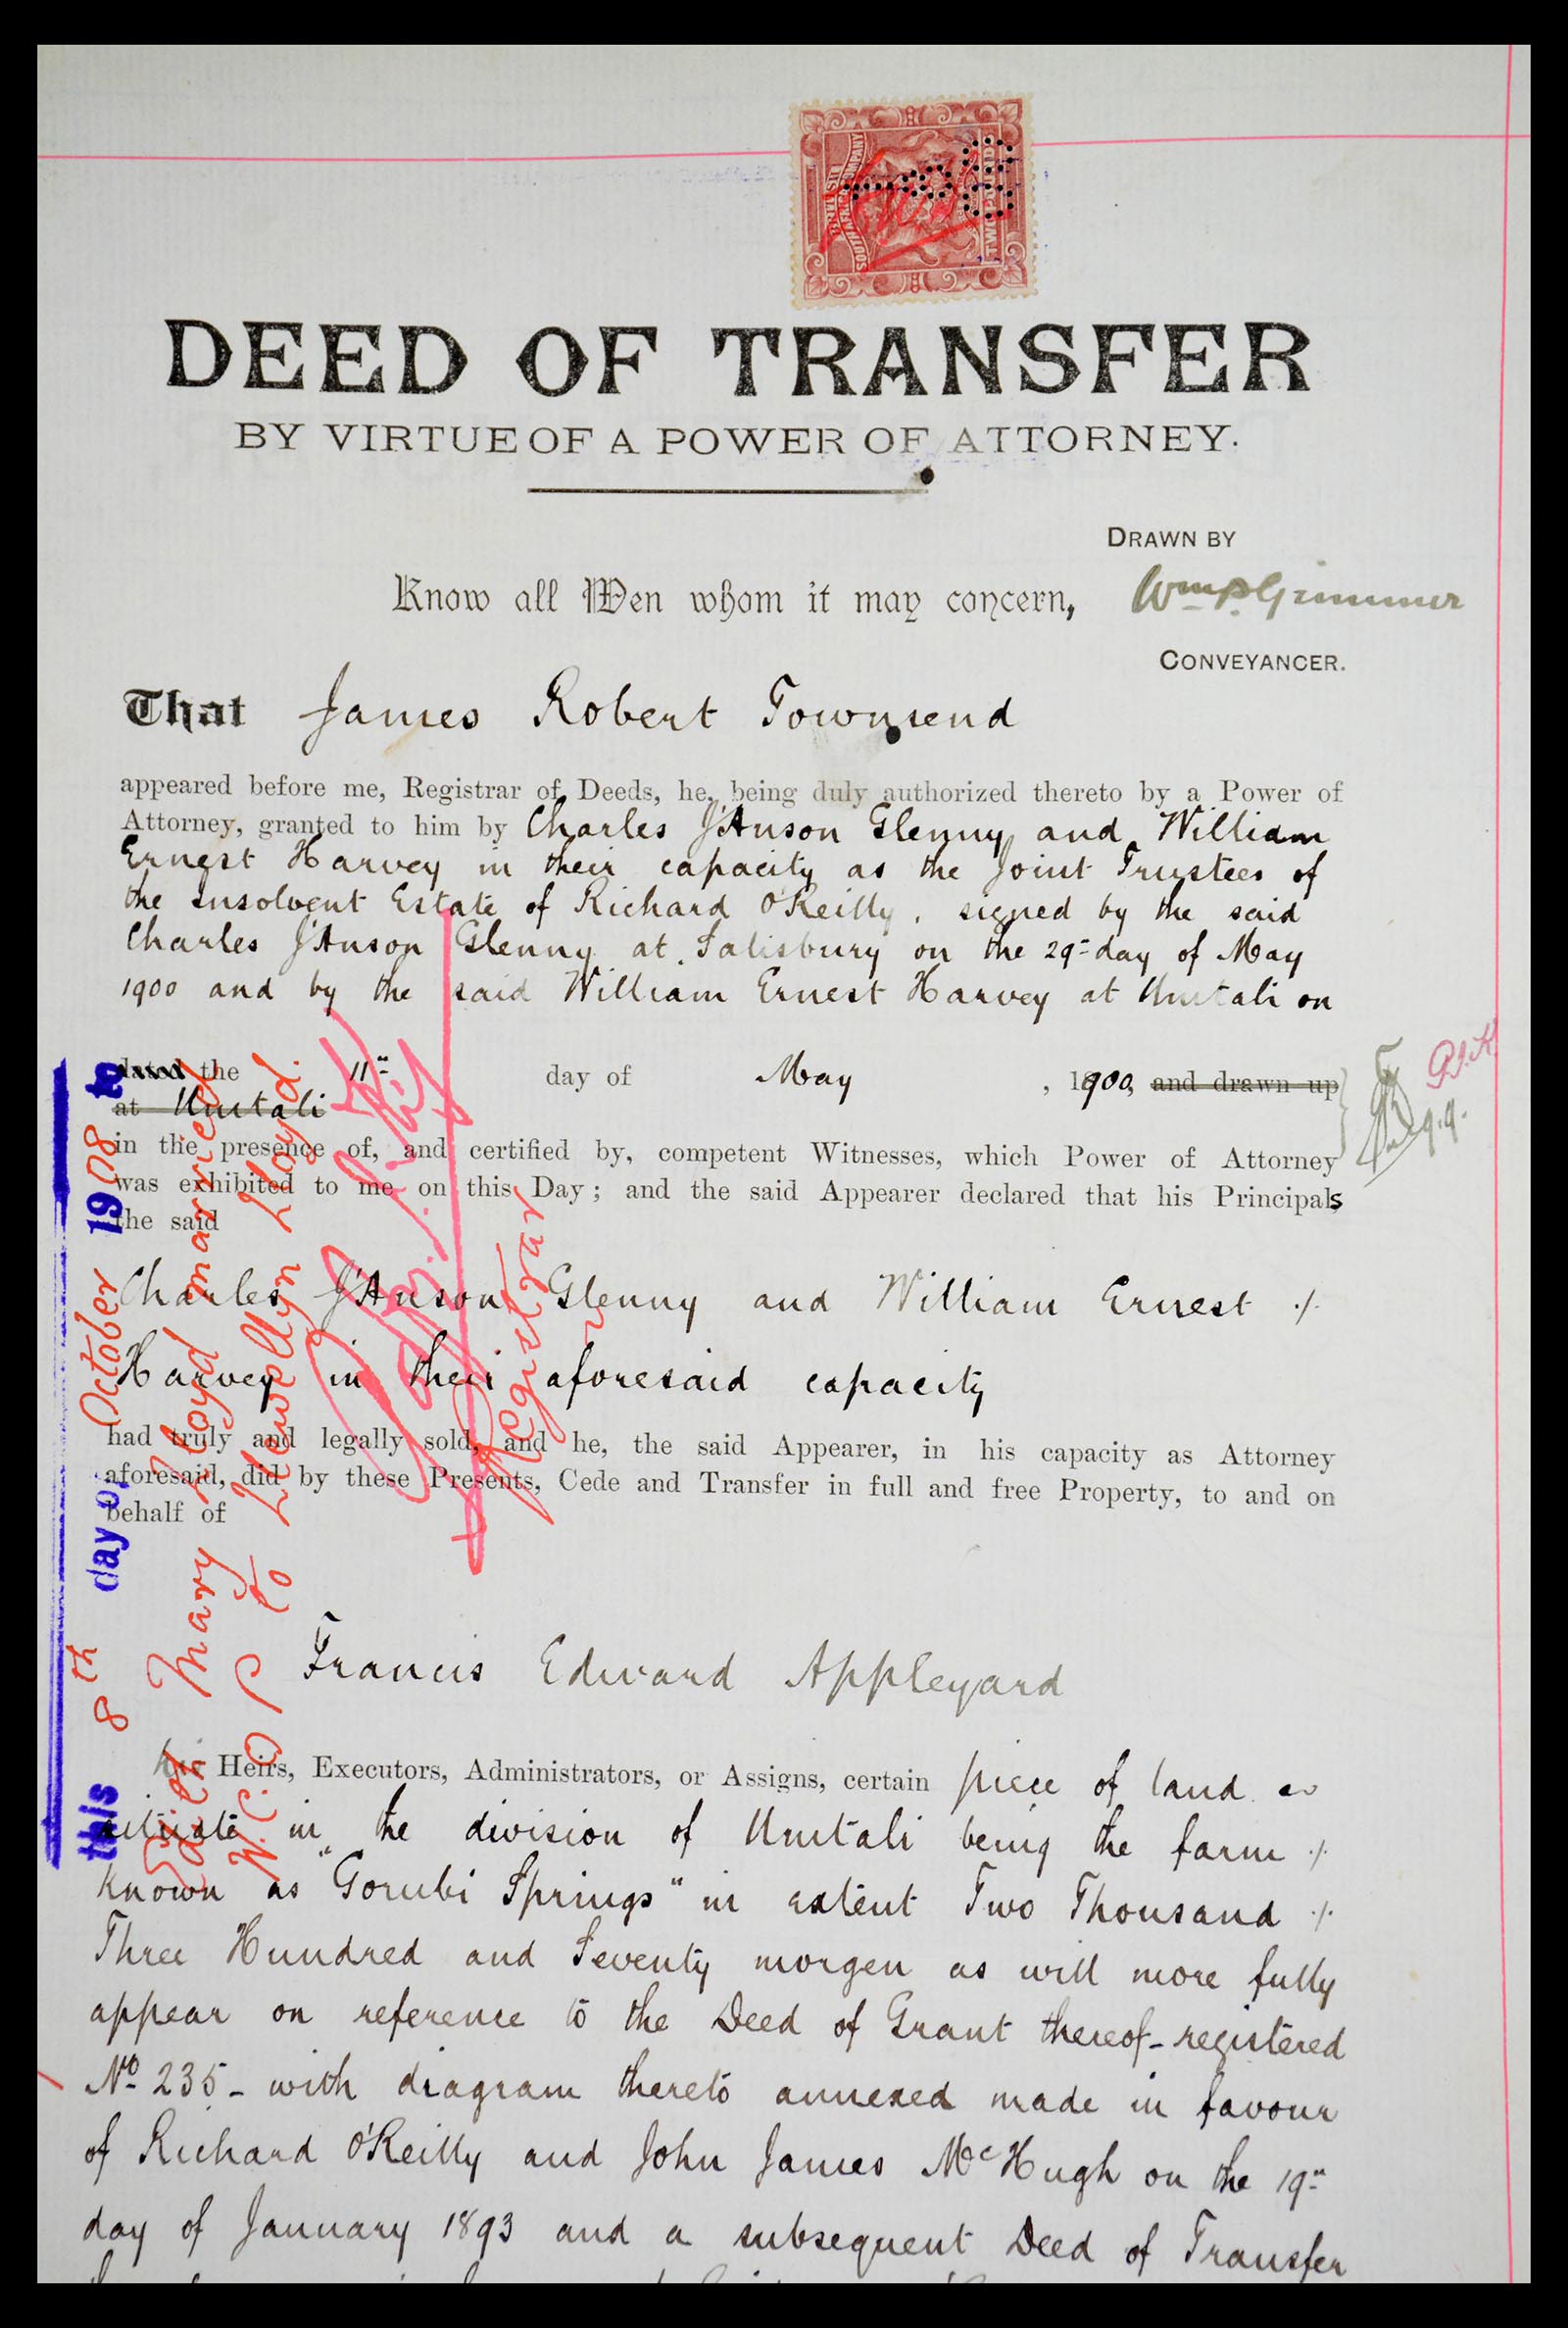 BRITISH
SOUTH AFRICA COMPANY
TWO POUNDS
DEED OF TRANSFER
BY VIRTUE OF A POWER OF ATTORNEY.
DRAWN BY
Know all Men whom it may concern,
CONVEYANCER.
That James Robert Townsend
appeared before me, Registrar of Deeds, he, being duly authorized thereto by a Power of
Attorney, granted to him by Charles J'Anson Glenny and William
Ernest Harvey in their capacity as the Joint Trustees of
the Insolvent Estate of Richard O'Reilly, signed by the said
Charles J'Anson Glenny at Salisbury on the 29th day of May
1900 and by the said William Ernest Harvey at Umtali on
dated the 11th day of May, 1900, and drawn up
at Umtali
in the presence of, and certified by, competent Witnesses, which Power of Attorney
was exhibited to me on this Day; and the said Appearer declared that his Principals
the said
Charles J'Anson Glenny and William Ernest ·/·
Harvey in their aforesaid capacity
had truly and legally sold, and he, the said Appearer, in his capacity as Attorney
aforesaid, did by these Presents, Cede and Transfer in full and free Property, to and on
behalf of
Francis Edward Appleyard
his Heirs, Executors, Administrators, or Assigns, certain piece of land
situate in the division of Umtali being the farm ·/·
known as "Gorubi Springs" in extent Two Thousand ·/·
Three Hundred and Seventy morgen as will more fully
appear on reference to the Deed of Grant thereof - registered
No 235 - with diagram thereto annexed made in favour
of Richard O'Reilly and John James McHugh on the 19th
day of January 1893 and a subsequent Deed of Transfer
this 8th day of October 1908 to
Mary Lloyd married
W.C.O.P. to Llewellyn Lloyd.
Registrar